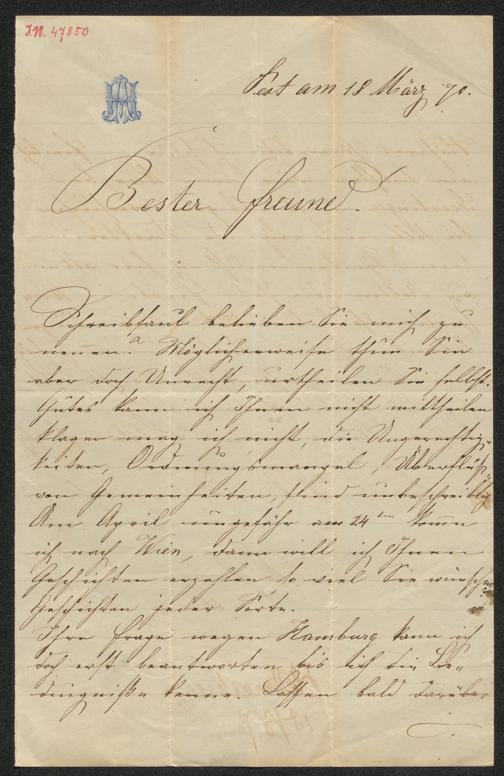 I.N. 47850
Pest am 18 März 70.
Bester Freund.
Schreibfaul belieben Sie mich zu
nennen? Möglicherweise thun Sie
aber doch Unrecht, urtheilen Sie selbst.
Gutes kann ich Ihnen nicht mittheilen
klagen mag ich nicht, die Ungerechtig-
keiten, Ordnungsmangel, Überfluß
von Gemeinheiten, sind unbeschreiblich
Am April ungefähr am 24ten komme
ich nach Wien, dann will ich Ihnen
Geschichten erzählen so viel Sie wünschen
Geschichten jeder Sorte.
Ihre Frage wegen Hamburg kann ich
doch erst beantworten bis ich die Be-
dingniße kenne. Lassen bald darüber